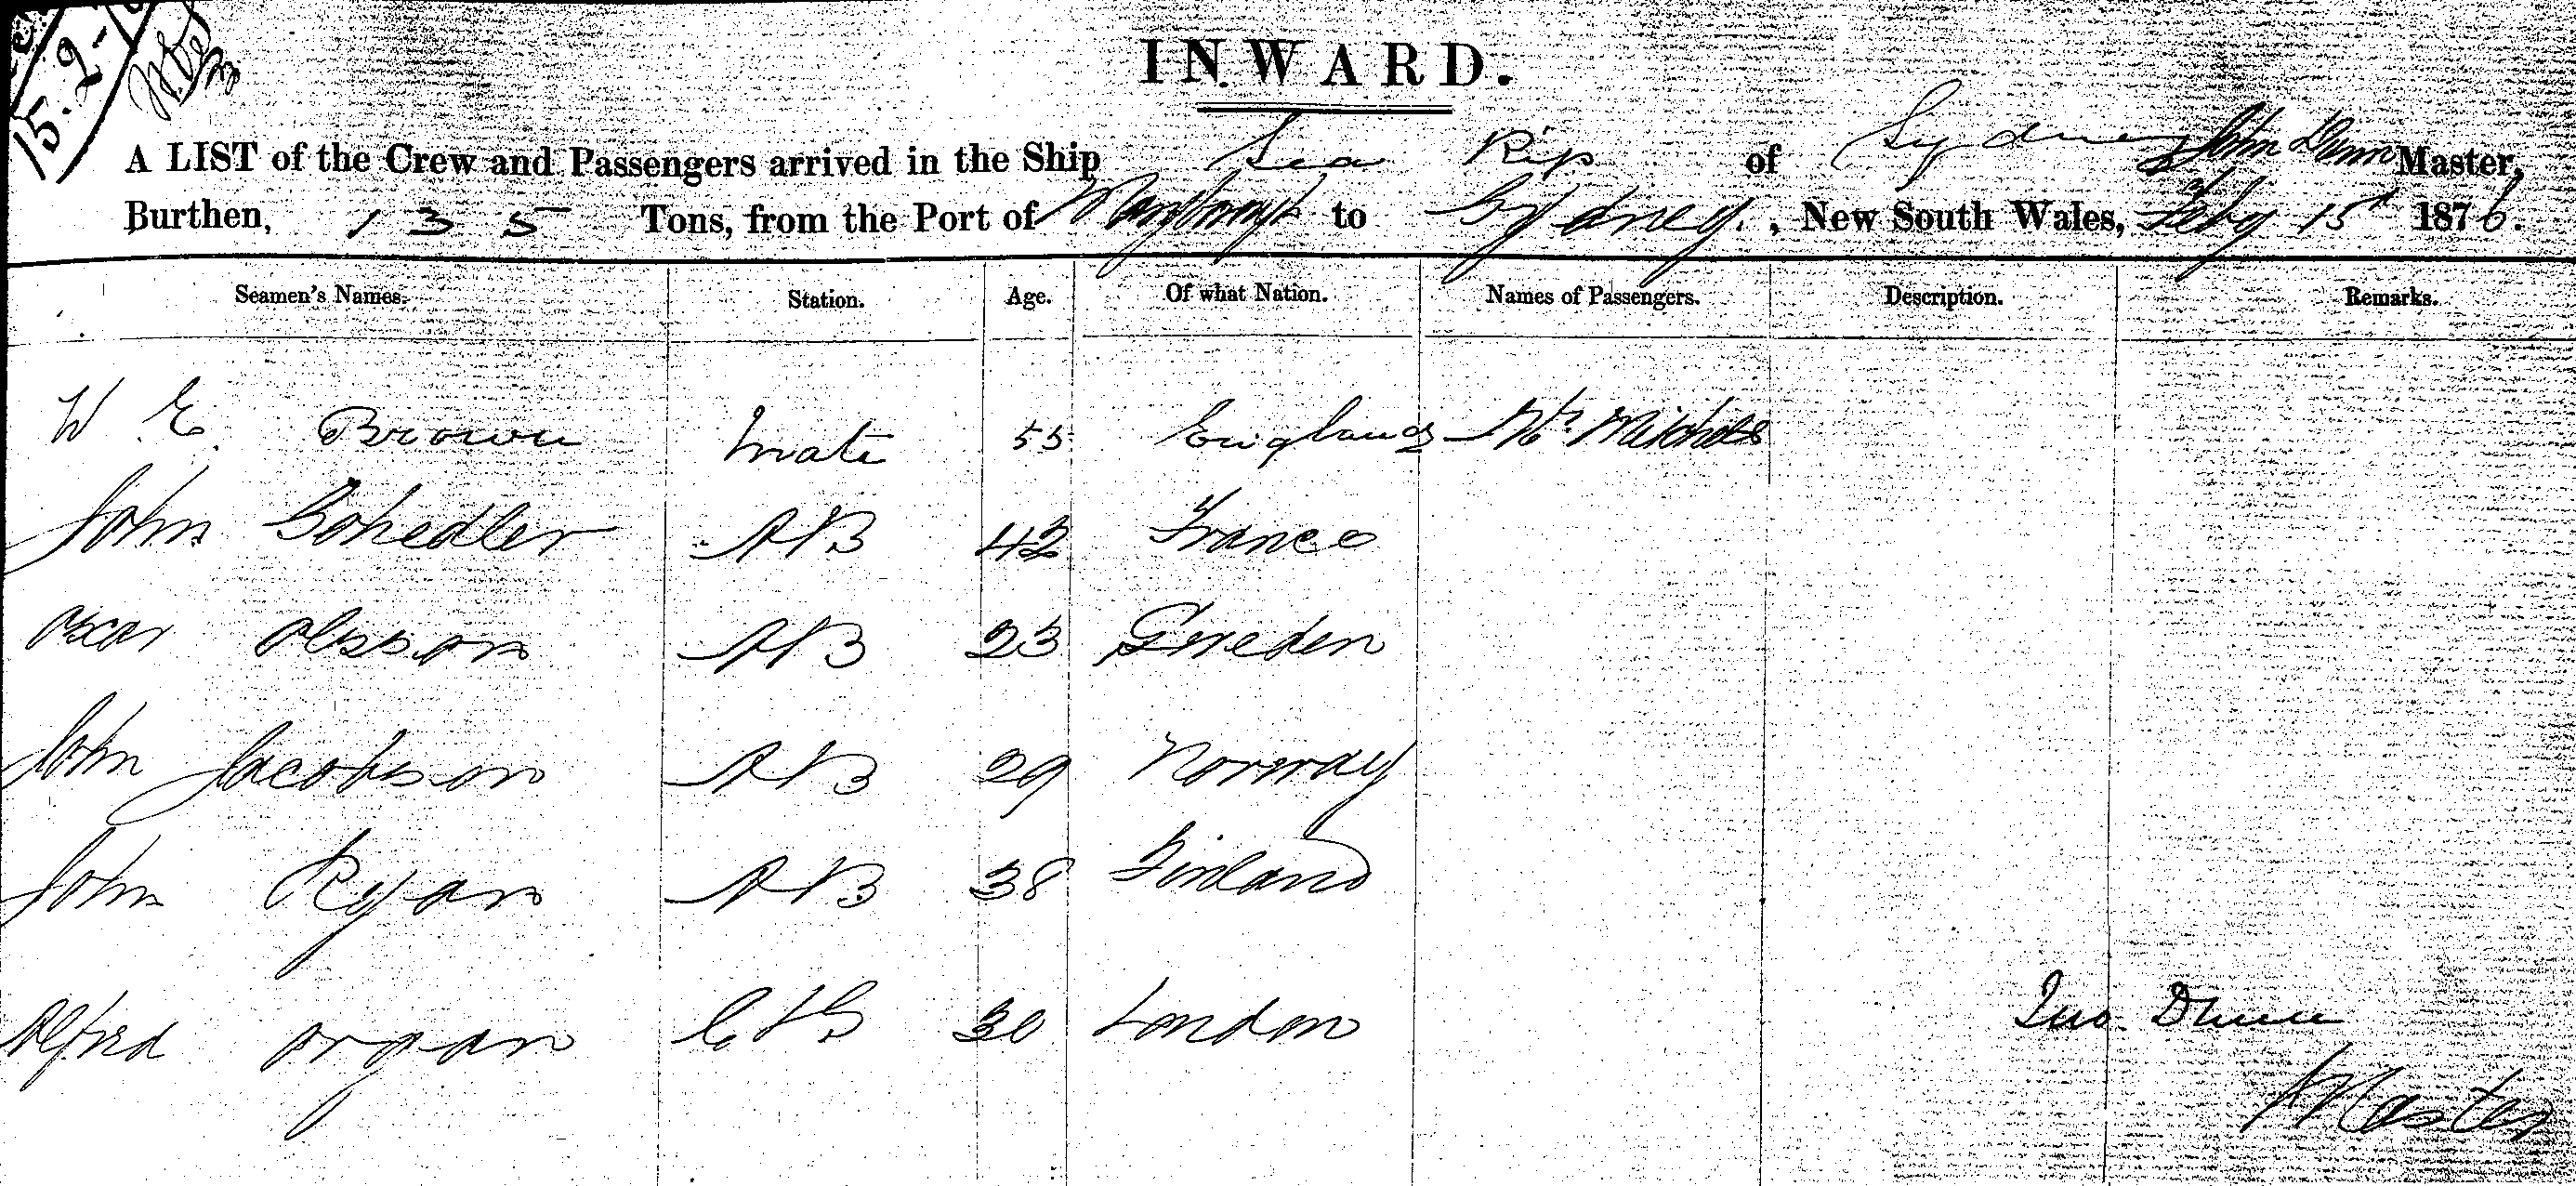 15.2-
INWARD.
A LIST of the Crew and Passengers arrived in the Ship Sea Rip of Sydney John Dunn Master,
Burthen, 135 Tons, from the Port of Maryborough to Sydney. , New South Wales, Feby 15th 1876.
Seamen's Names. Station. Age. Of what Nation. Names of Passengers. Description. Remarks.
W E. Brown Mate 55 England Mr
John Schedler AB 42 France
Oscar Olsson AB 23 Sweden
John Jacobson AB 29 Norway
John Ryan AB 38 Finland
Alfred Organ C & S 30 London
Jno. Dunn
Master